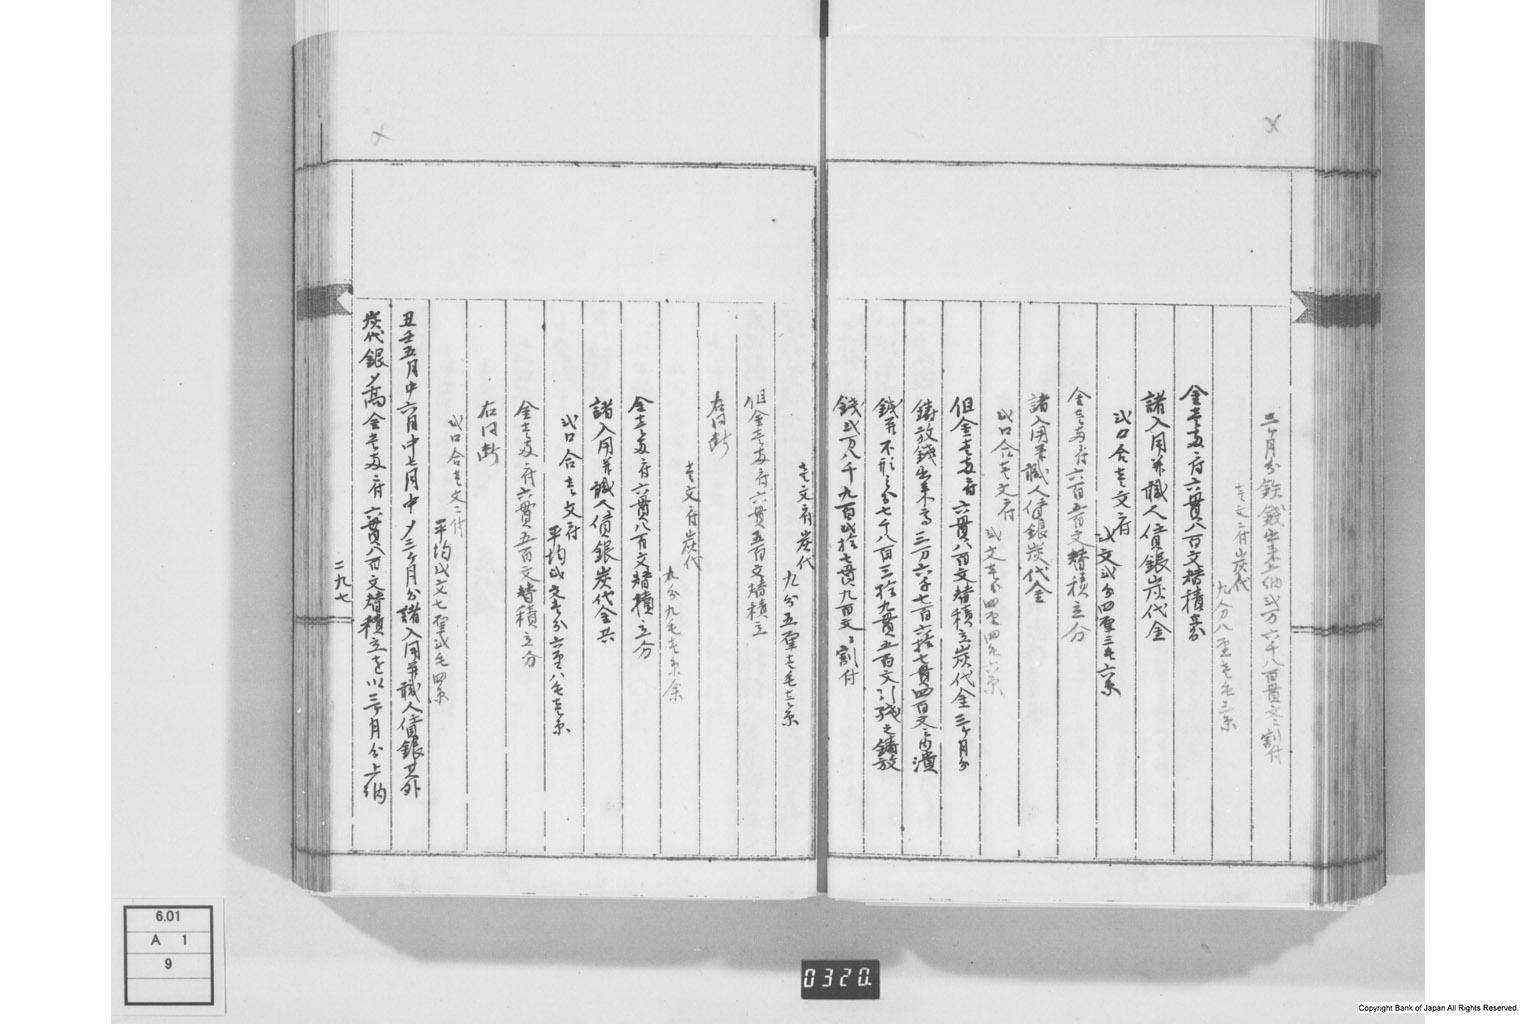 三ヶ月分鉄銭出来上納弐万六千八百貫文ニ割付
壱文ニ付炭代
九分八厘壱毛三糸
金壱両ニ付六貫八百文替積立分
諸入用并職人賃銀炭代金
弐口合壱文ニ付
弐文弐分四厘三毛六糸
金壱両ニ付六貫五百文替積立分
諸入用并職人賃銀炭代金
弐口合壱文ニ付
但金壱両ニ付六貫八百文替積立炭代金三ヶ月分
鋳放銭出来高三万六千七百六拾七貫四百文之内潰
銭并不形之分七千八百三拾九貫五百文引残之鋳放
銭弐万八千九百弐拾七貫九百文ニ割付
壱文ニ付炭代
九分五厘壱毛壱糸
但金壱両ニ付六貫五百文替積立
右同断
壱文ニ付炭代
九分九毛壱糸余
金壱両ニ付六貫八百文替積立分
諸入用并職人賃銀炭代金共
弐口合壱文ニ付
平均弐文壱分六厘八毛壱糸
金壱両ニ付六貫五百文替積立分
右同断
弐口合壱文ニ付
平均弐文七厘弐毛四糸
丑壬五月中六月中七月中〆三ヶ月分諸入用并職人賃銀其外
炭代銀〆高金壱両ニ付六貫八百文替積立を以三ヶ月分上納
二九七
6.01
A 1
9
0320.
Copyright Bank of Japan All Rights Reserved.